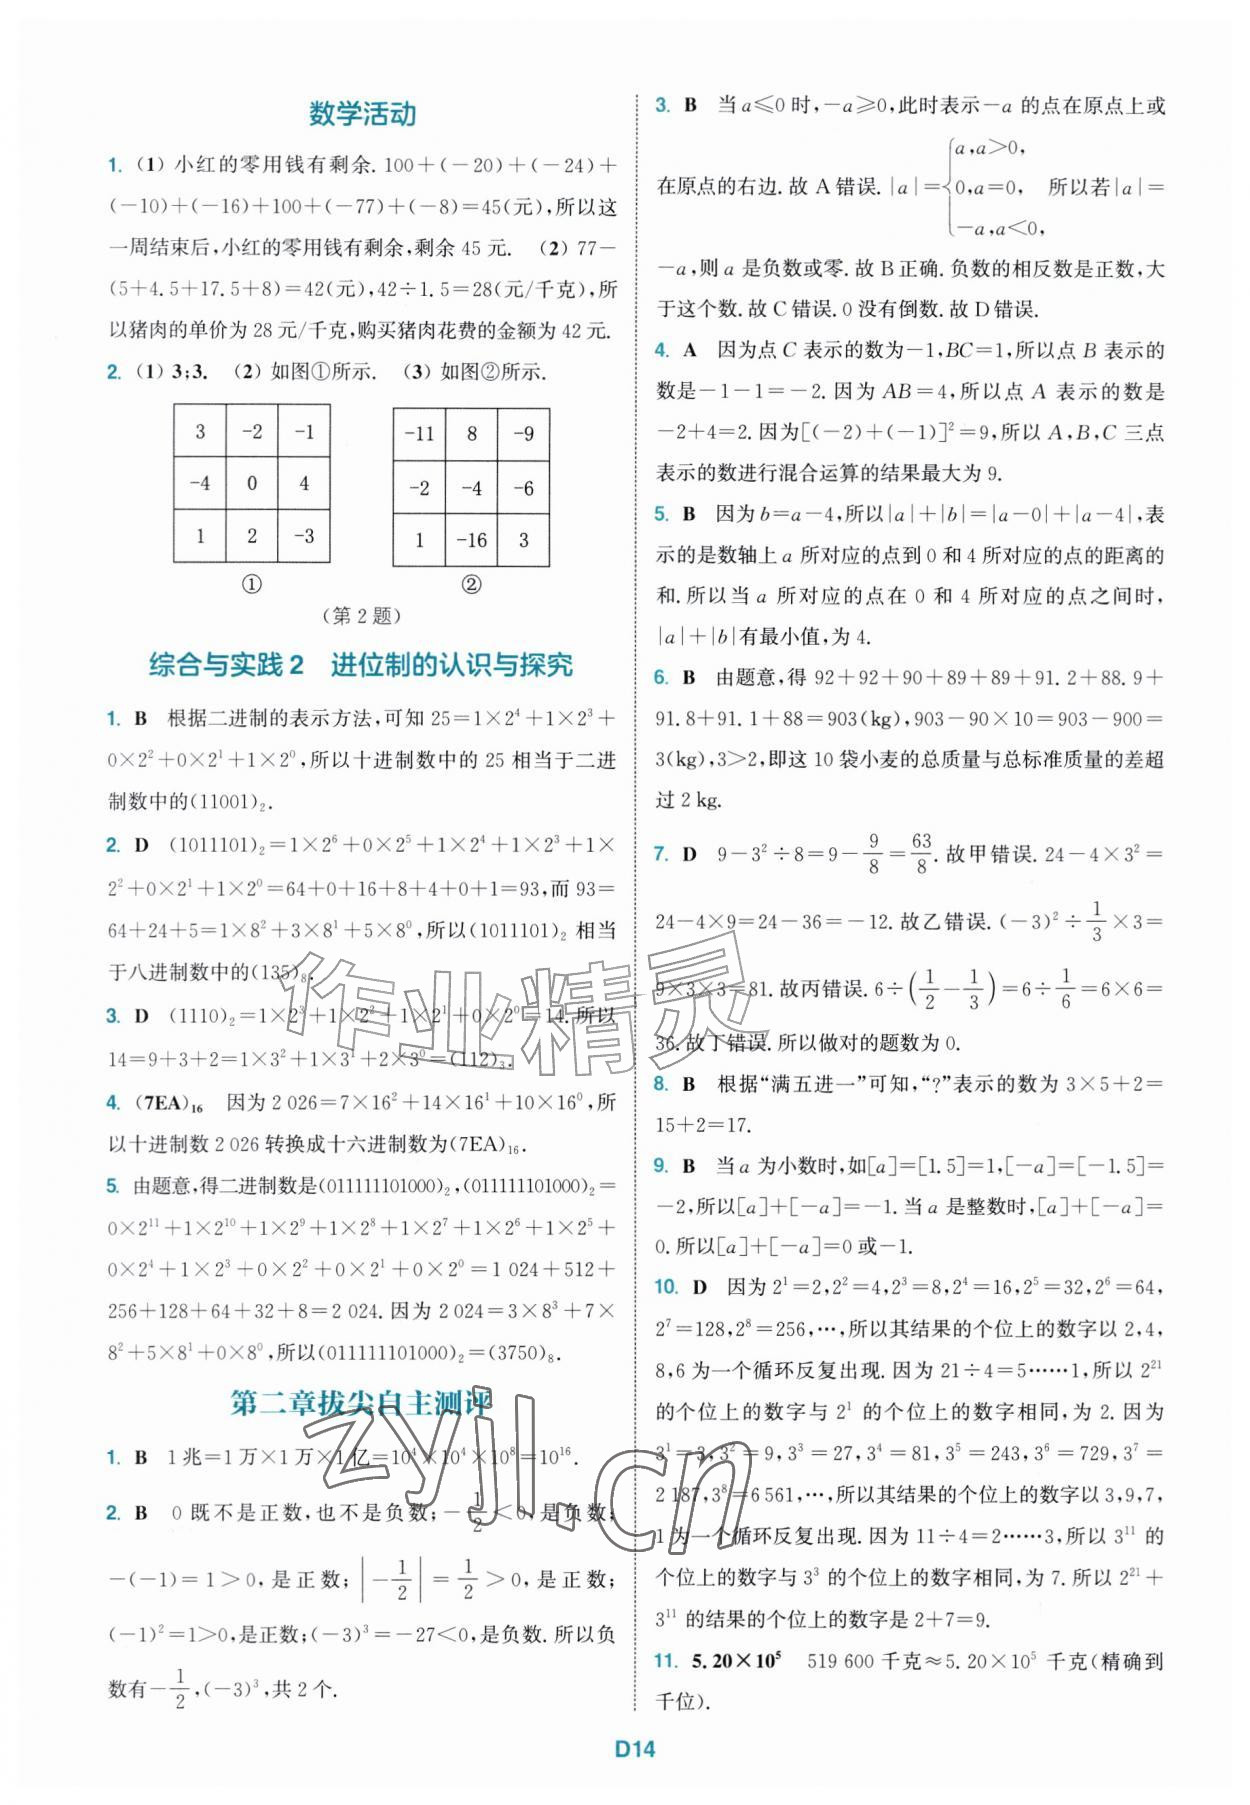 数学活动
1. (1) 小红的零用钱有剩余. 100+(-20)+(-24)+
(-10)+(-16)+100+(-77)+(-8)=45(元),所以这
一周结束后,小红的零用钱有剩余,剩余 45 元. (2) 77-
(5+4.5+17.5+8)=42(元),42÷1.5=28(元/千克),所
以猪肉的单价为 28 元/千克,购买猪肉花费的金额为 42 元.
2. (1) 3;3. (2) 如图①所示. (3) 如图②所示.
3 -2 -1
-4 0 4
1 2 -3
①
-11 8 -9
-2 -4 -6
1 -16 3
②
(第 2 题)
综合与实践 2 进位制的认识与探究
1. B 根据二进制的表示方法,可知 25=1×2⁴+1×2³+
0×2²+0×2¹+1×2⁰,所以十进制数中的 25 相当于二进
制数中的(11001)₂.
2. D (1011101)₂=1×2⁶+0×2⁵+1×2⁴+1×2³+1×
2²+0×2¹+1×2⁰=64+0+16+8+4+0+1=93,而 93=
64+24+5=1×8²+3×8¹+5×8⁰,所以(1011101)₂ 相当
于八进制数中的(135)₈.
3. D (1110)₂=1×2³+1×2²+1×2¹+0×2⁰=14.所以
14=9+3+2=1×3²+1×3¹+2×3⁰=(112)₃.
4. (7EA)₁₆ 因为 2 026=7×16²+14×16¹+10×16⁰,所
以十进制数 2 026 转换成十六进制数为(7EA)₁₆.
5. 由题意,得二进制数是(011111101000)₂,(011111101000)₂=
0×2¹¹+1×2¹⁰+1×2⁹+1×2⁸+1×2⁷+1×2⁶+1×2⁵+
0×2⁴+1×2³+0×2²+0×2¹+0×2⁰=1 024+512+
256+128+64+32+8=2 024.因为 2 024=3×8³+7×
8²+5×8¹+0×8⁰,所以(011111101000)₂=(3750)₈.
第二章拔尖自主测评
1. B 1 兆=1 万×1 万×1 亿=10⁴×10⁴×10⁸=10¹⁶.
2. B 0 既不是正数,也不是负数;-1/2<0,是负数;
-(-1)=1>0,是正数;|-1/2|=1/2>0,是正数;
(-1)²=1>0,是正数;(-3)³=-27<0,是负数.所以负
数有-1/2,(-3)³,共 2 个.
3. B 当 a≤0 时,-a≥0,此时表示-a 的点在原点上或
在原点的右边.故 A 错误.|a|={a,a>0, 0,a=0, -a,a<0, 所以若|a|=
-a,则 a 是负数或零.故 B 正确.负数的相反数是正数,大
于这个数.故 C 错误.0 没有倒数.故 D 错误.
4. A 因为点 C 表示的数为-1,BC=1,所以点 B 表示的
数是-1-1=-2.因为 AB=4,所以点 A 表示的数是
-2+4=2.因为[(-2)+(-1)]²=9,所以 A,B,C 三点
表示的数进行混合运算的结果最大为 9.
5. B 因为 b=a-4,所以|a|+|b|=|a-0|+|a-4|,表
示的是数轴上 a 所对应的点到 0 和 4 所对应的点的距离的
和.所以当 a 所对应的点在 0 和 4 所对应的点之间时,
|a|+|b|有最小值,为 4.
6. B 由题意,得 92+92+90+89+89+91.2+88.9+
91.8+91.1+88=903(kg),903-90×10=903-900=
3(kg),3>2,即这 10 袋小麦的总质量与总标准质量的差超
过 2 kg.
7. D 9-3²÷8=9-9/8=63/8.故甲错误.24-4×3²=
24-4×9=24-36=-12.故乙错误.(-3)²÷1/3×3=
9×3×3=81.故丙错误.6÷(1/2-1/3)=6÷1/6=6×6=
36.故丁错误.所以做对的题数为 0.
8. B 根据“满五进一”可知,“?”表示的数为 3×5+2=
15+2=17.
9. B 当 a 为小数时,如[a]=[1.5]=1,[-a]=[-1.5]=
-2,所以[a]+[-a]=-1.当 a 是整数时,[a]+[-a]=
0.所以[a]+[-a]=0 或-1.
10. D 因为 2¹=2,2²=4,2³=8,2⁴=16,2⁵=32,2⁶=64,
2⁷=128,2⁸=256,…,所以其结果的个位上的数字以 2,4,
8,6 为一个循环反复出现.因为 21÷4=5……1,所以 2²¹
的个位上的数字与 2¹ 的个位上的数字相同,为 2.因为
3¹=3,3²=9,3³=27,3⁴=81,3⁵=243,3⁶=729,3⁷=
2 187,3⁸=6 561,…,所以其结果的个位上的数字以 3,9,7,
1 为一个循环反复出现.因为 11÷4=2……3,所以 3¹¹ 的
个位上的数字与 3³ 的个位上的数字相同,为 7.所以 2²¹+
3¹¹ 的结果的个位上的数字是 2+7=9.
11. 5.20×10⁵ 519 600 千克≈5.20×10⁵ 千克(精确到
千位).
作业精灵
zyjl.cn
D14